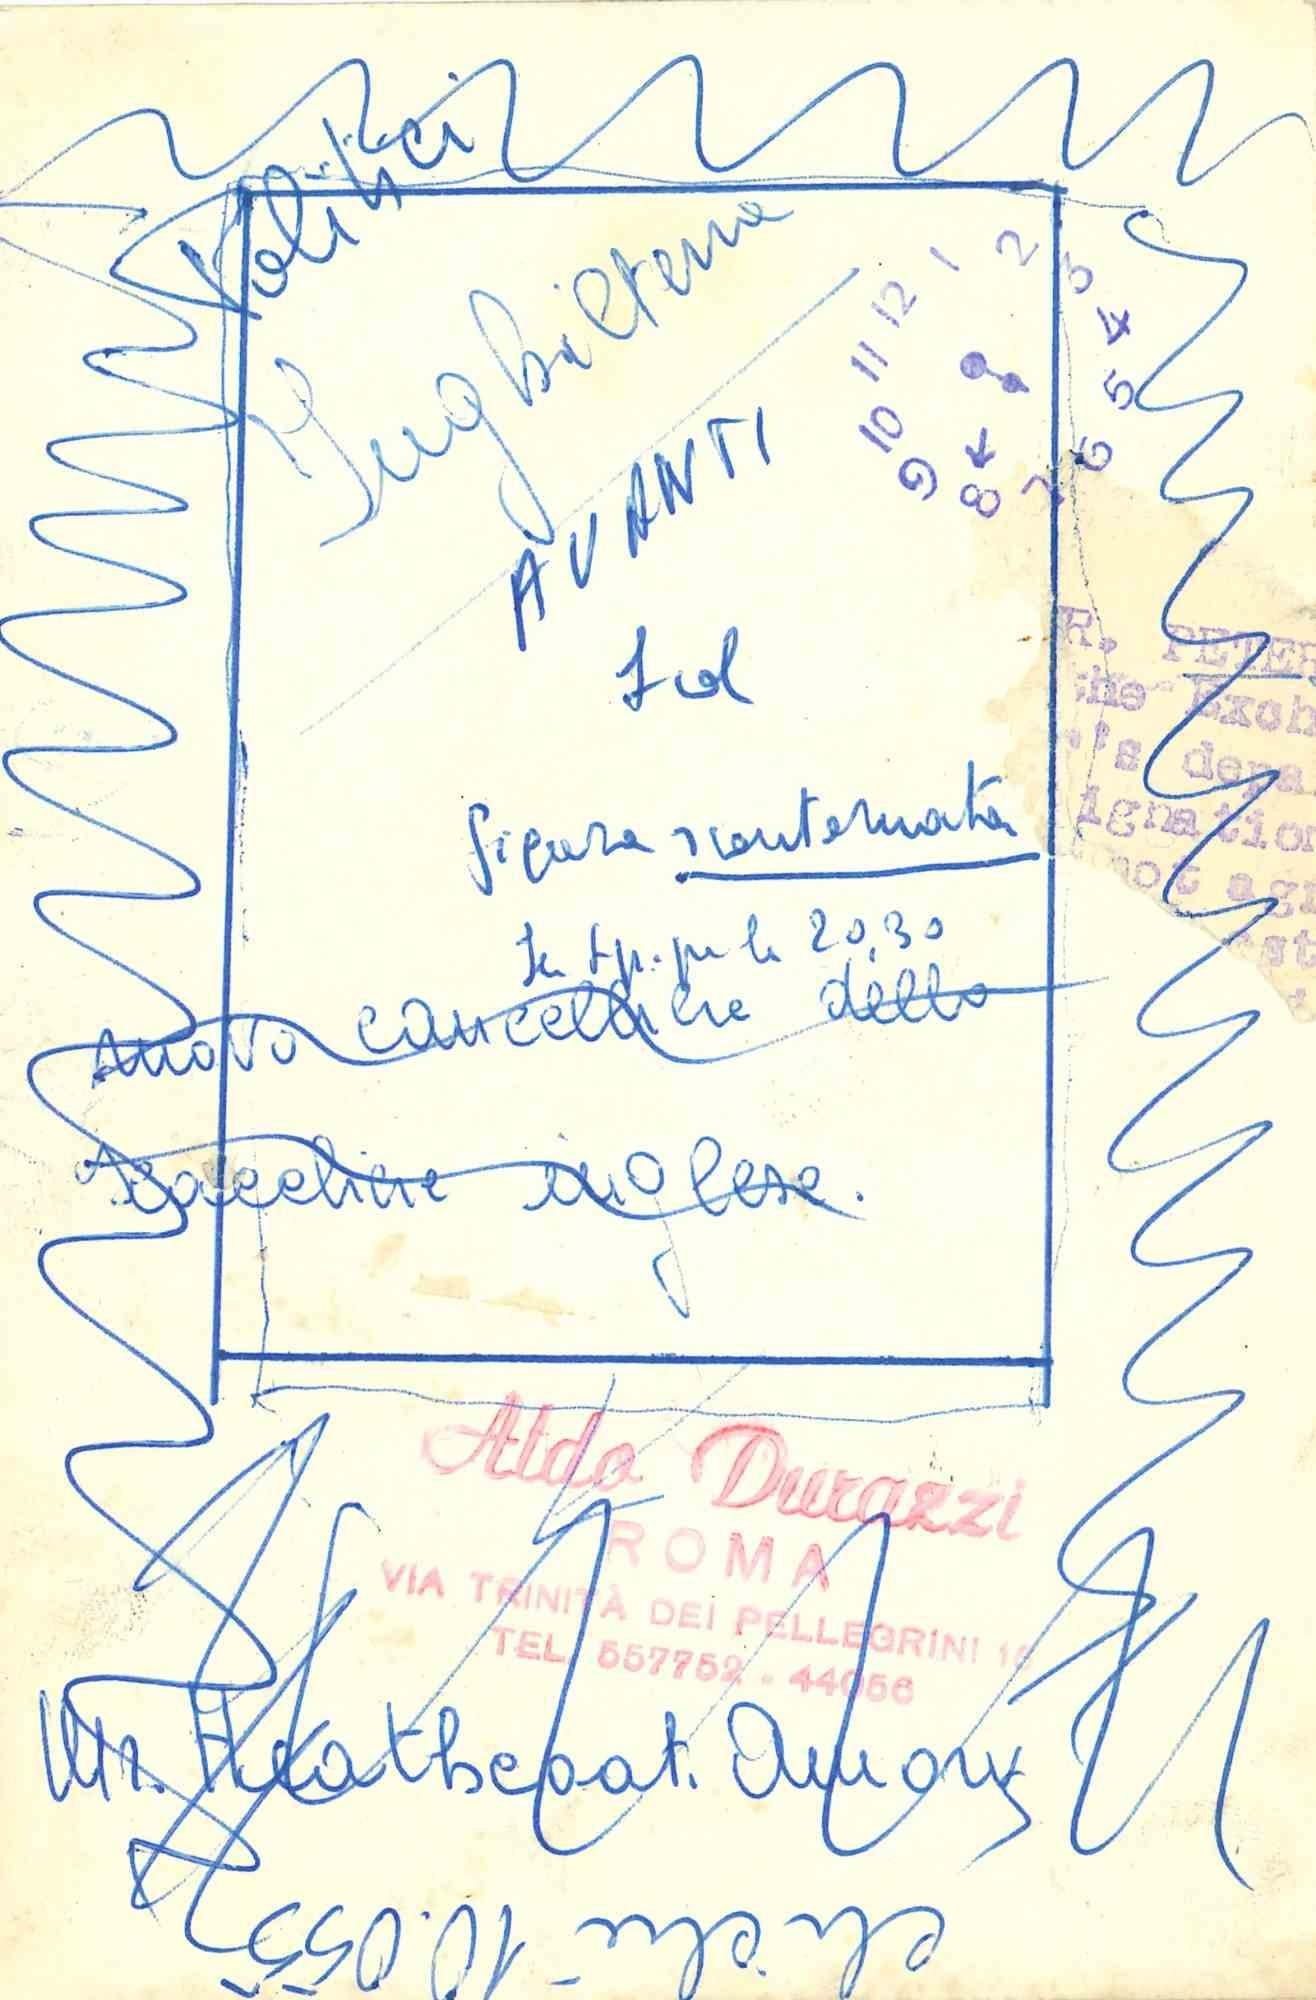 Politici
Inghilterra
12 1 2 3
11 4
10 5
9 8 7 6
AVANTI
1 col
figura scontornata
20,30
nuovo cancelliere dello
scacchiere inglese.
R. PETER
the Exch
r's depa
ignation
not agr
Aldo Durazzi
ROMA
VIA TRINITÀ DEI PELLEGRINI 16
TEL. 557752 - 44056
Mr. Heathcoat. Amory
cliché 10.055